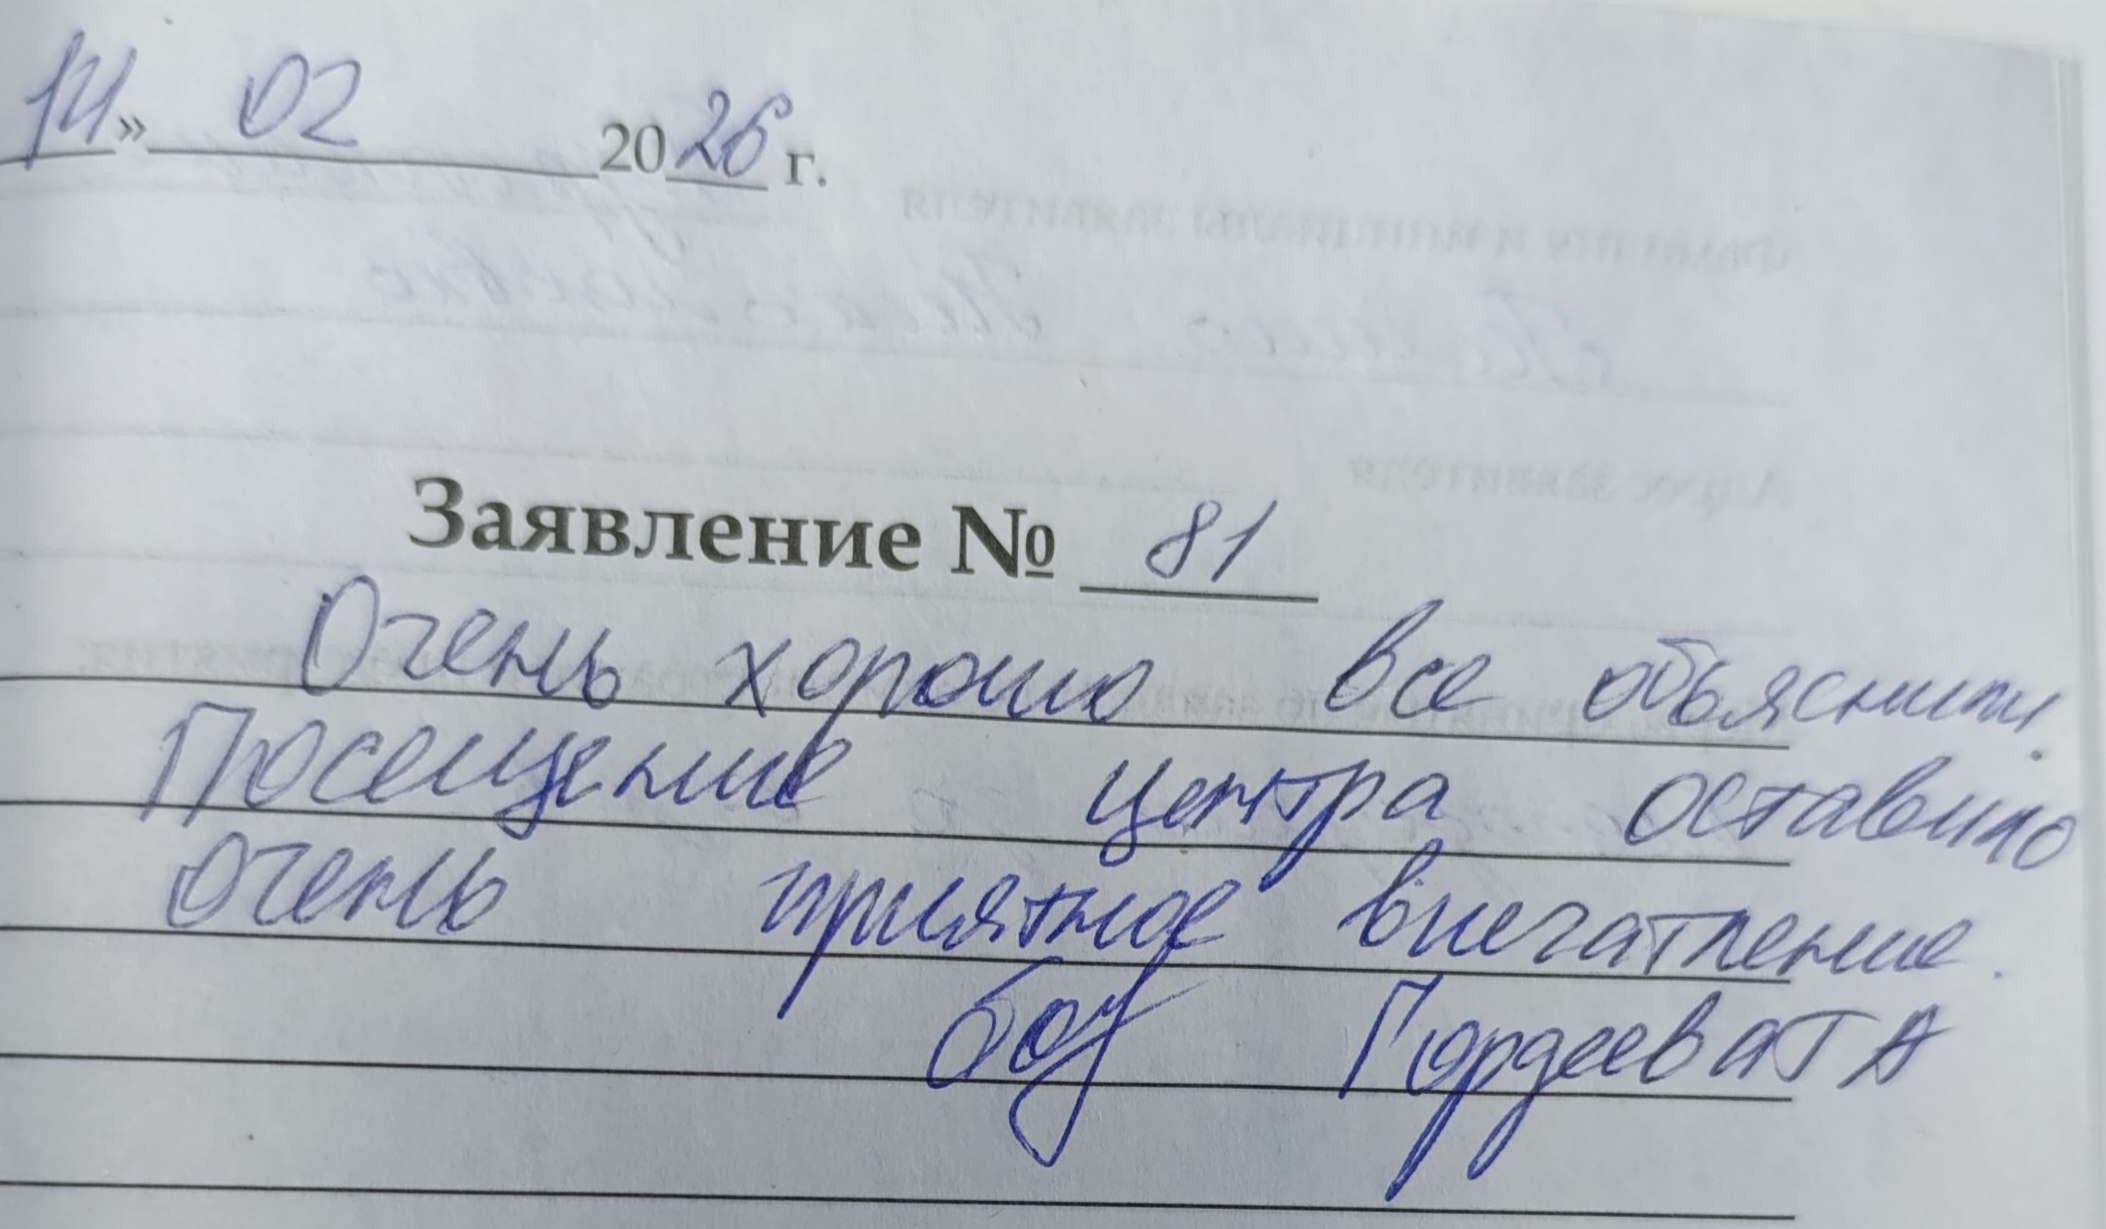 14» 02 2026 г.
Заявление № 81
Очень хорошо все объяснили.
Посещение центра оставило
очень приятное впечатление.
Гордеева Т А